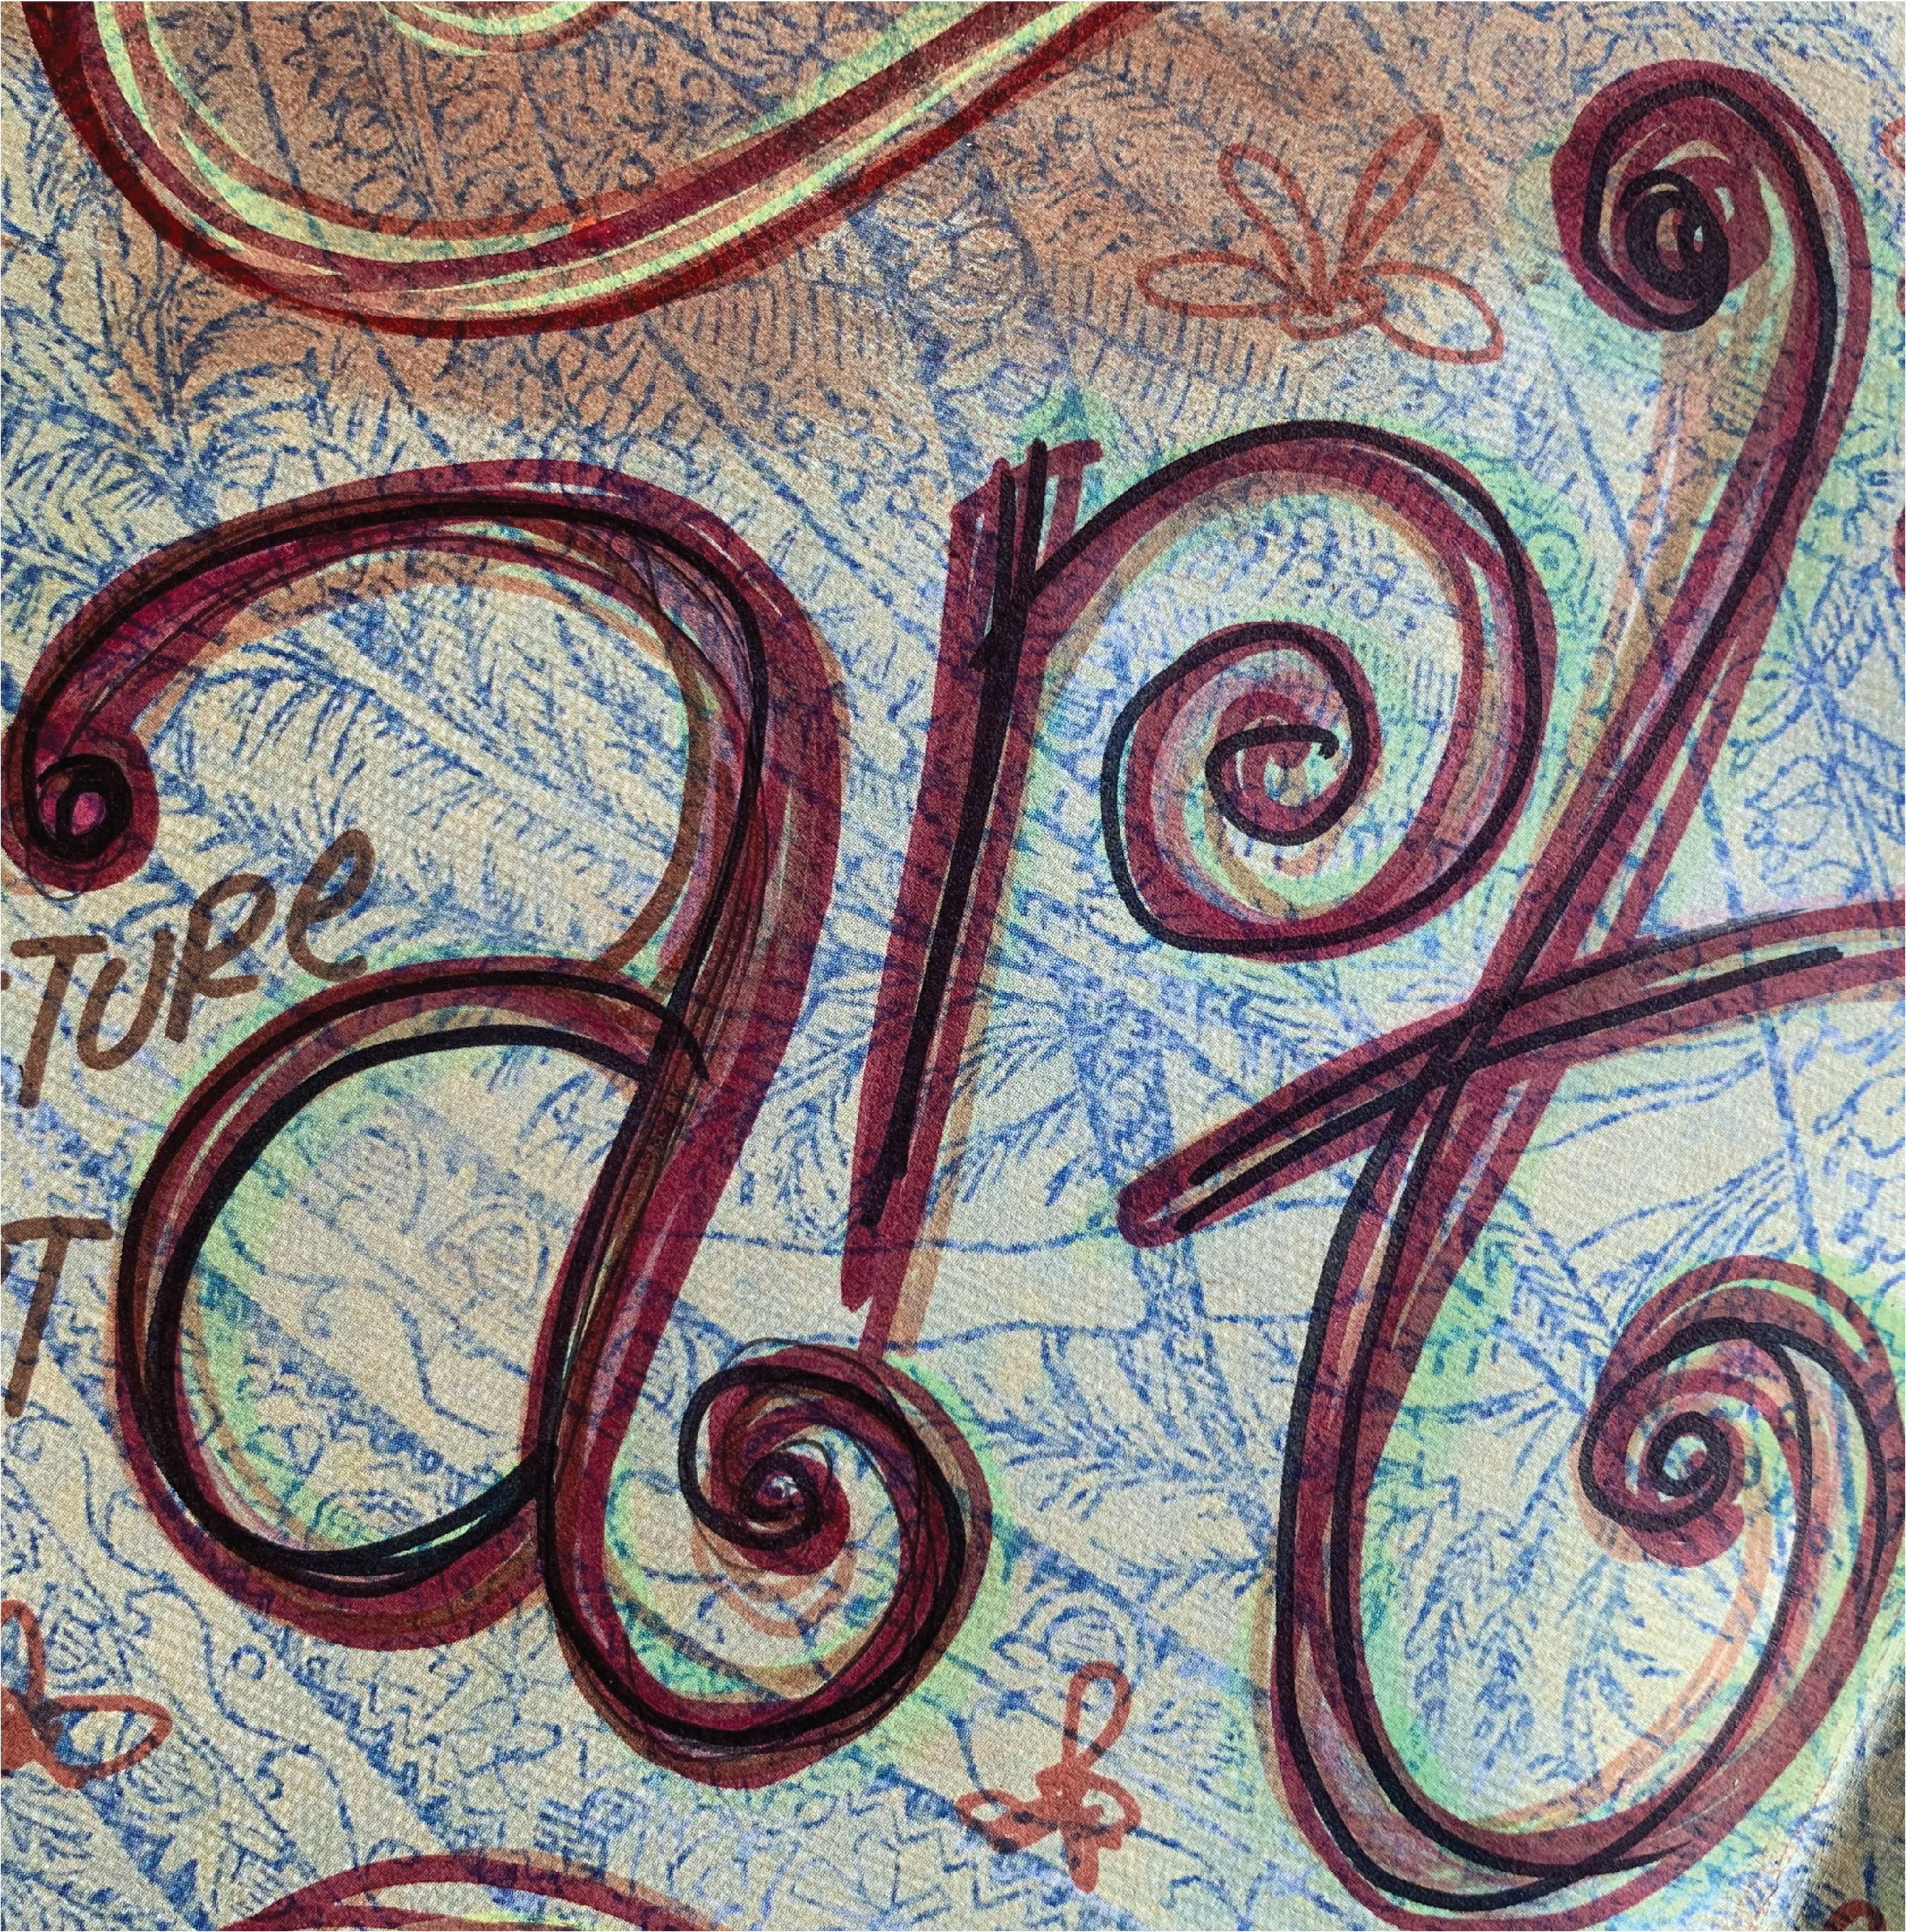 art
TURe
T